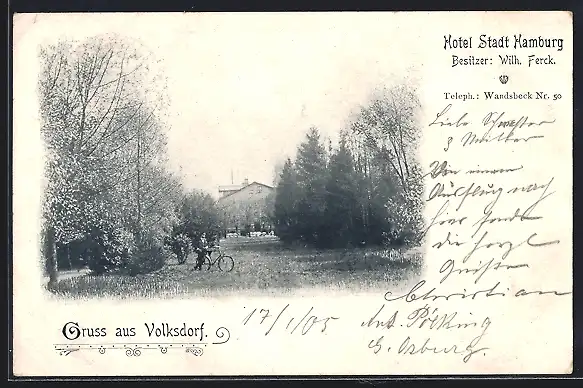 Hotel Stadt Hamburg
Besitzer: Wilh. Ferck.
Teleph.: Wandsbeck Nr. 50
Liebe Schwester
& Mutter
Von einem
Ausflug nach
hier sendet
die herzl
Grüße
Christian
Gruss aus Volksdorf.
17/1/05
Ant. Pöcking
G. Asburg